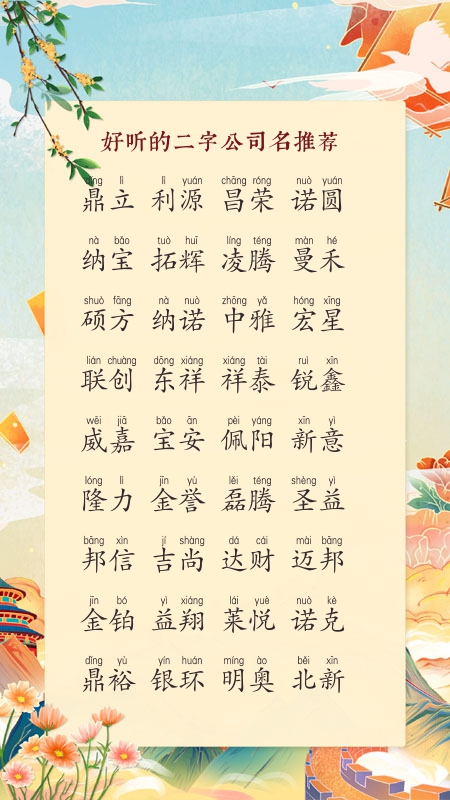 好听的二字公司名推荐
dǐng lì lì yuán chāng róng nuò yuán
鼎立 利源 昌荣 诺圆
nà bǎo tuò huī líng téng màn hé
纳宝 拓辉 凌腾 曼禾
shuò fāng nà nuò zhōng yǎ hóng xīng
硕方 纳诺 中雅 宏星
lián chuàng dōng xiáng xiáng tài ruì xīn
联创 东祥 祥泰 锐鑫
wēi jiā bǎo ān pèi yáng xīn yì
威嘉 宝安 佩阳 新意
lóng lì jīn yù lěi téng shèng yì
隆力 金誉 磊腾 圣益
bāng xìn jí shàng dá cái mài bāng
邦信 吉尚 达财 迈邦
jīn bó yì xiáng lái yuè nuò kè
金铂 益翔 莱悦 诺克
dǐng yù yín huán míng ào běi xīn
鼎裕 银环 明奥 北新